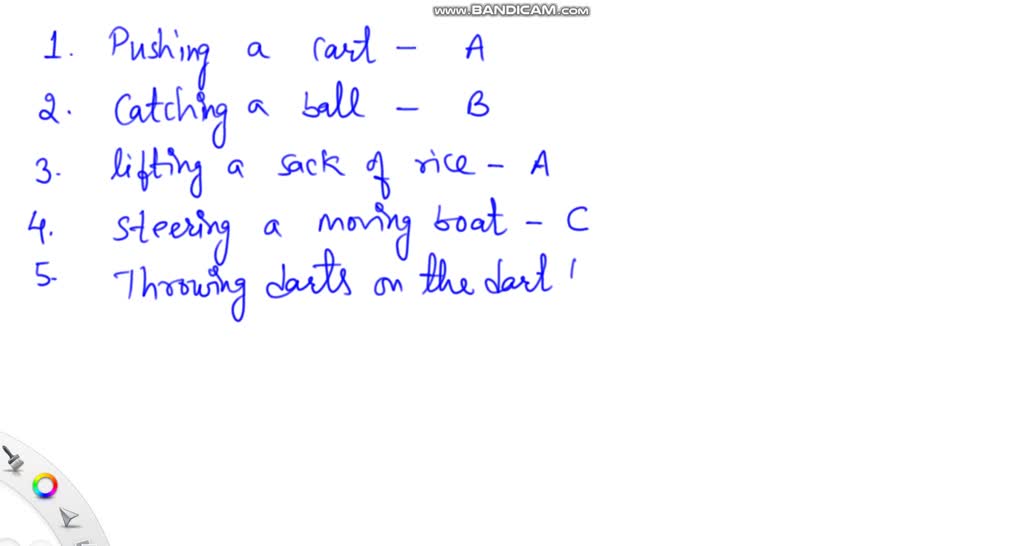 www.BANDICAM.com
1. Pushing a cart - A
2. Catching a ball - B
3. lifting a sack of rice - A
4. Steering a moving boat - C
5. Throwing darts on the dart